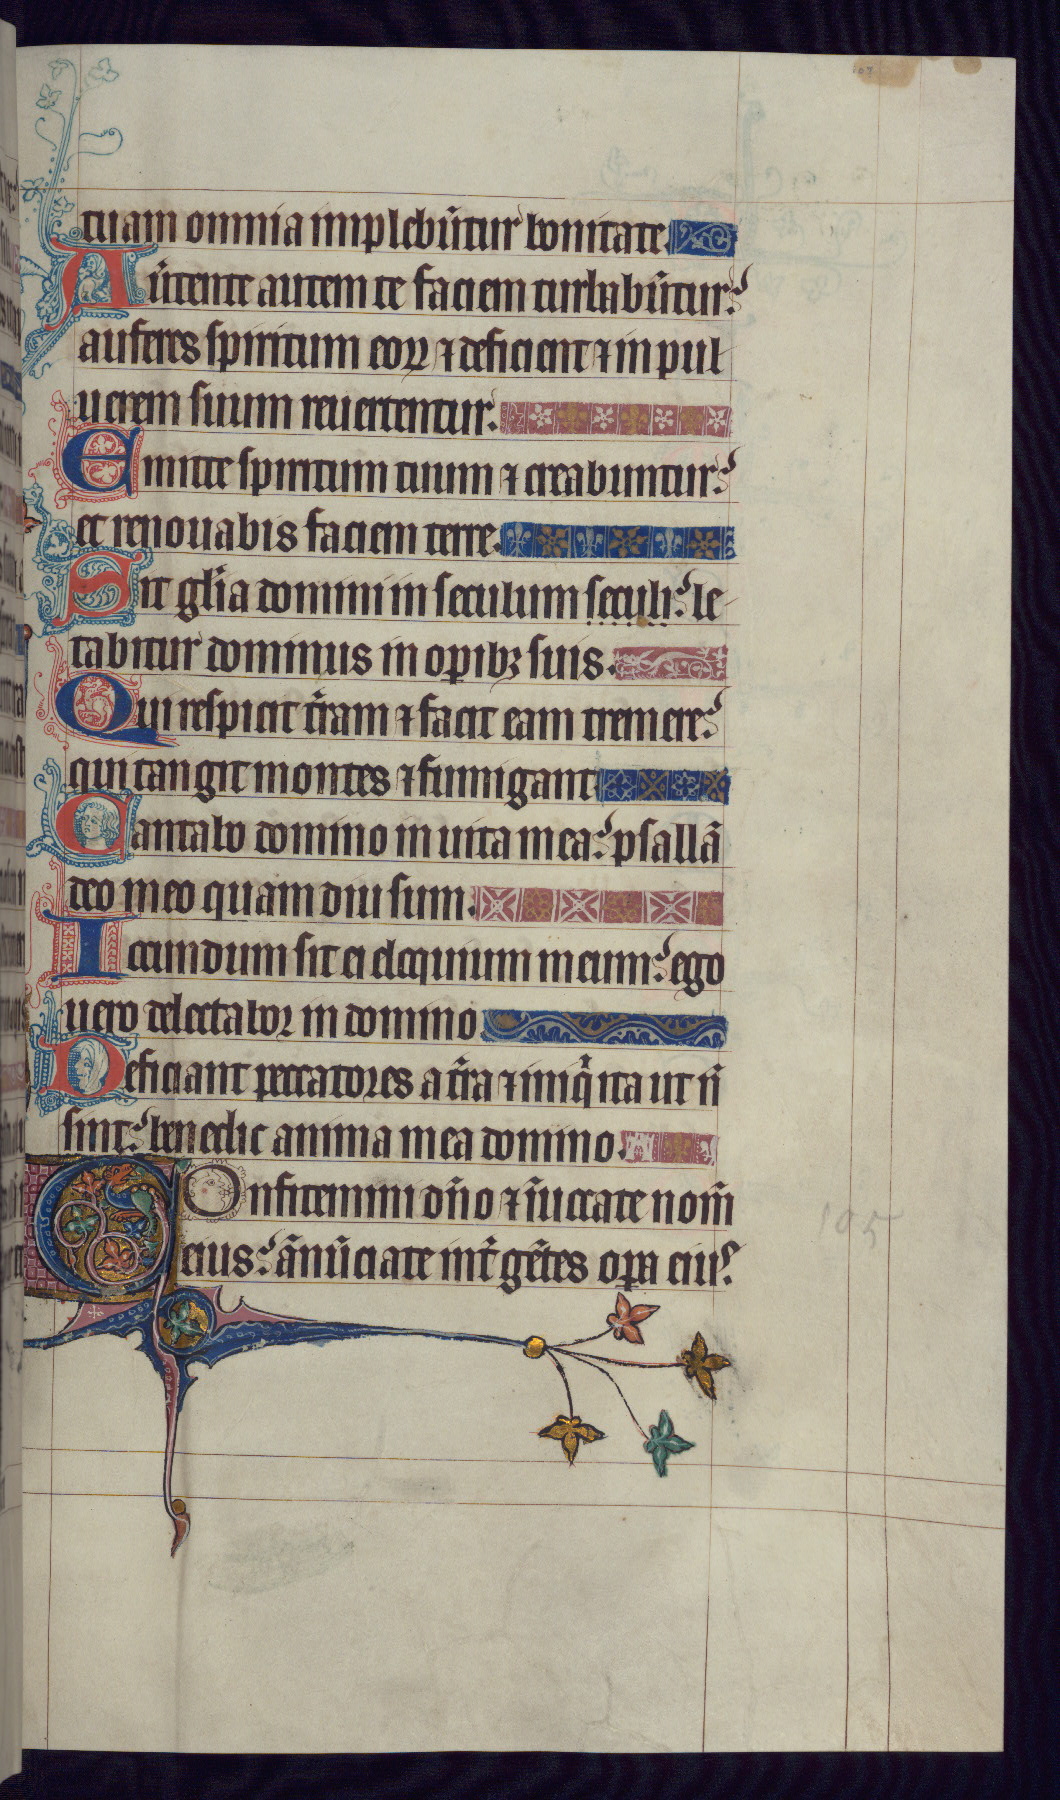 107
tuam omnia implebũtur bonitate
Aũtente autem te faciem turbabũtur:
auferes spiritum eoꝝ ⁊ deficient ⁊ in pul
uerem suum reuertentur.
Emitte spiritum tuum ⁊ creabuntur:
et renouabis faciem terre.
Sit gl̃ia domini in seculum seculi: le
tabitur dominus in oꝑibꝫ suis.
Qui respicit t̃ram ⁊ facit eam tremere:
qui tangit montes ⁊ fumigant
Cantabo domino in uita mea: psallã
deo meo quam diu sum.
Iocundum sit ei eloquium meum: ego
uero delectabor in domino
Deficiant peccatores a t̃ra ⁊ iniq̃ ita ut ñ
sint: benedic anima mea domino.
COnfitemini dño ⁊ ĩuocate nom̃
eius: ãnũciate int̃ gẽtes oꝑa eiuꝰ.
105